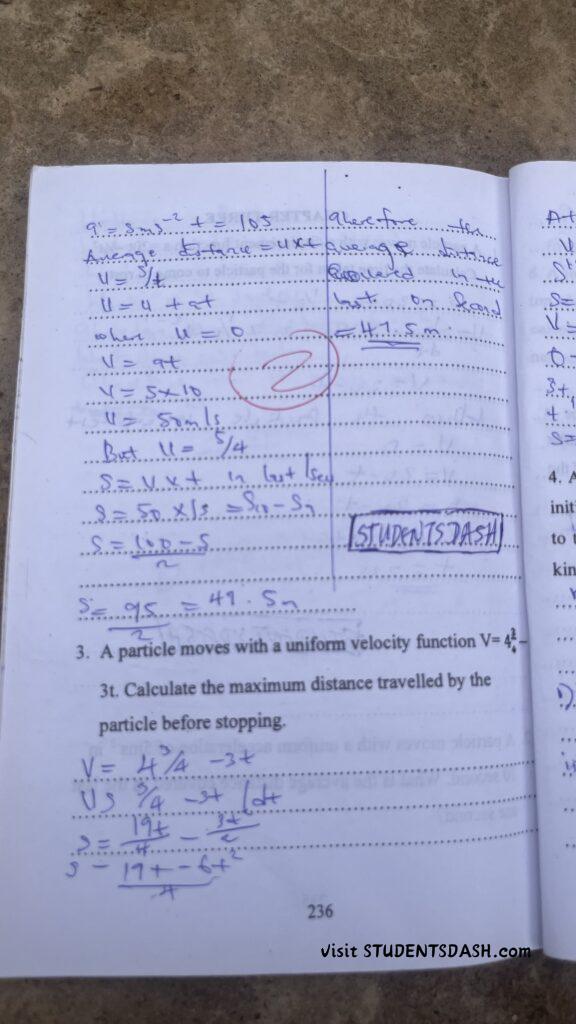 a = 5ms⁻² t = 10s
Average distance = u x t
U = S/t
U = u + at
where u = 0
V = at
V = 5 x 10
U = 50m/s
But U = S/4
S = V x t in last 1sec
S = 50 x 1s = S10 - Sn
S = 100 - 5
2
S = 95 = 49.5m
2
therefore the
average distance
covered in the
last on second
= 47.5m
2
STUDENTSDASH
3. A particle moves with a uniform velocity function V= 4 3/4 –
3t. Calculate the maximum distance travelled by the
particle before stopping.
V = 4 3/4 - 3t
3/4 - 3t dt
S = 19t/4 - 3t²/2
S = 19t - 6t²
4
236
visit STUDENTSDASH.com
4. A
initi
to t
kin